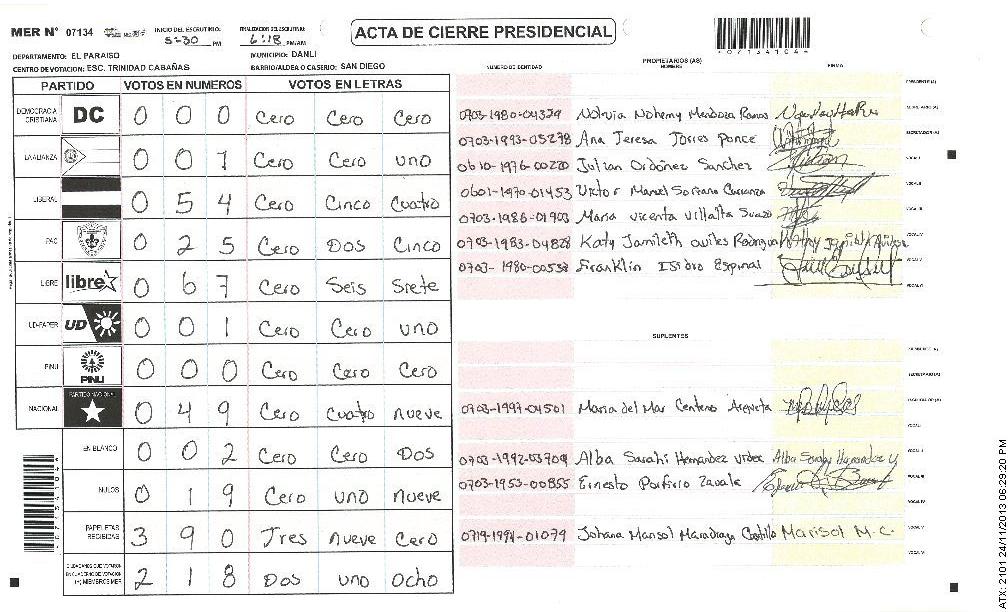 MER Nº 07134
INICIO DEL ESCRUTINIO: 5:30 PM
FINALIZACION DEL ESCRUTINIO: 6:18 PM/AM
ACTA DE CIERRE PRESIDENCIAL
DEPARTAMENTO: EL PARAISO
MUNICIPIO: DANLI
CENTRO DE VOTACION: ESC. TRINIDAD CABAÑAS
BARRIO/ALDEA O CASERIO: SAN DIEGO
PARTIDO VOTOS EN NUMEROS VOTOS EN LETRAS
DEMOCRACIA CRISTIANA DC 0 0 0 Cero Cero Cero
LA ALIANZA 0 0 1 Cero Cero uno
LIBERAL 0 5 4 Cero Cinco Cuatro
PAC 0 2 5 Cero Dos Cinco
LIBRE libre 0 6 7 Cero Seis Siete
UD-FAPER UD 0 0 1 Cero Cero uno
PINU PINU 0 0 0 Cero Cero Cero
NACIONAL PARTIDO NACIONAL 0 4 9 Cero Cuatro nueve
EN BLANCO 0 0 2 Cero Cero Dos
NULOS 0 1 9 Cero uno nueve
PAPELETAS RECIBIDAS 3 9 0 Tres nueve Cero
CIUDADANOS QUE VOTARON EN CUADERNO DE VOTACION (+) MIEMBROS MER 2 1 8 Dos uno ocho
NUMERO DE IDENTIDAD PROPIETARIOS (AS) NOMBRE FIRMA
PRESIDENTE (A)
0703-1980-04379 Nolvia Nohemy Mendoza Ramos SECRETARIO (A)
0703-1993-05278 Ana Teresa Torres Ponce ESCRUTADOR (A)
0610-1976-00220 Julian Ordoñez Sanchez VOCAL I
0601-1970-01453 Victor Manuel Soriano Carranza VOCAL II
0703-1986-01903 Maria Vicenta Villalta Suazo VOCAL III
0703-1983-04828 Katy Jamileth Aviles Rodriguez VOCAL IV
0703-1980-00538 Franklin Isidro Espinal VOCAL V
VOCAL VI
SUPLENTES
PRESIDENTE (A)
SECRETARIO (A)
0703-1997-04501 Maria del Mar Centeno Argueta ESCRUTADOR (A)
VOCAL I
0703-1992-03709 Alba Sarahi Hernandez VOCAL II
0703-1953-00855 Ernesto Porfirio Zavala VOCAL III
VOCAL IV
0719-1994-01079 Johana Marisol Maradiaga Castillo Marisol M.C. VOCAL V
VOCAL VI
ATX: 2101 24/11/2013 06:29:20 PM